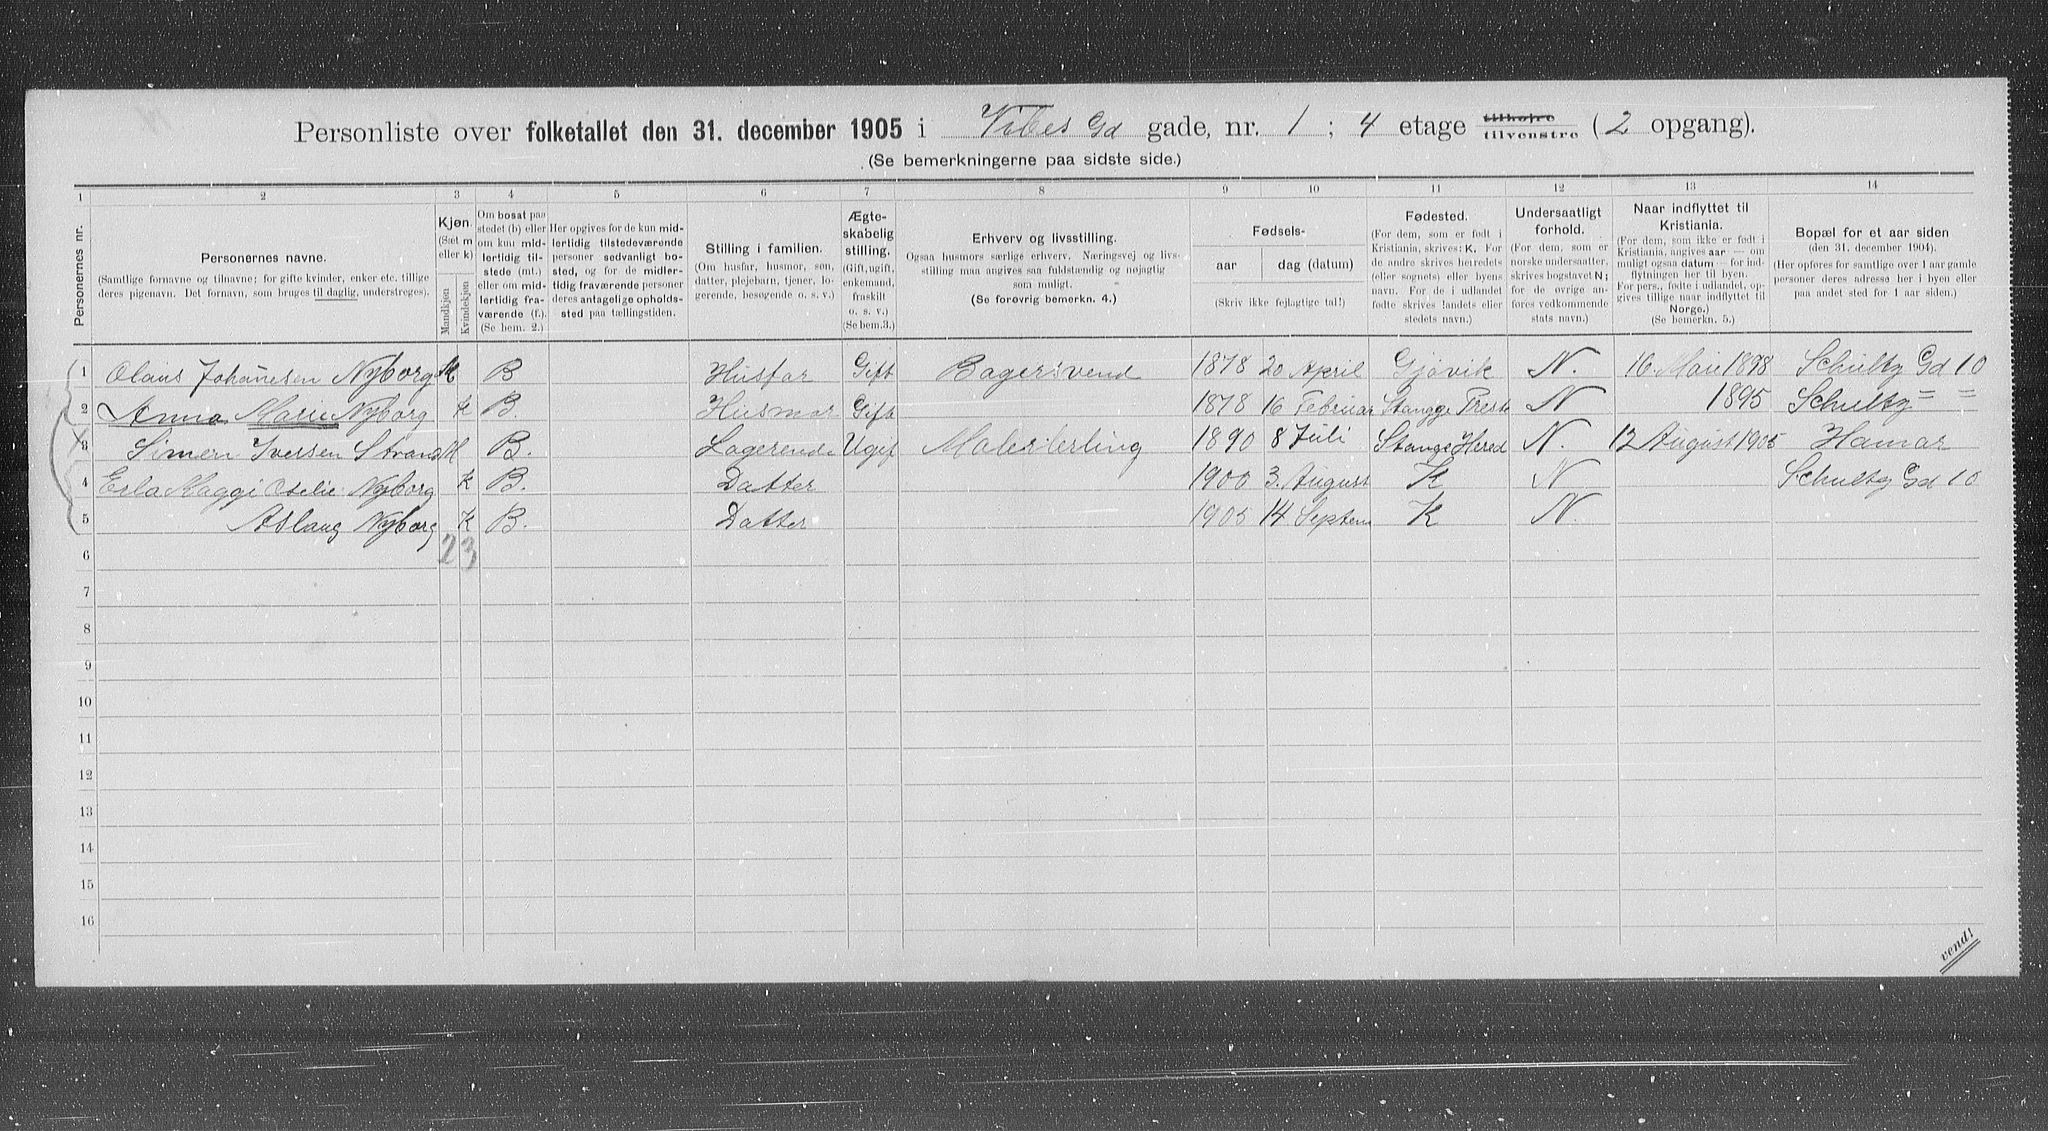 Personliste over folketallet den 31. december 1905 i Vibes Gd gade, nr. 1 ; 4 etage tilhøjre tilvenstre (2 opgang).
(Se bemerkningerne paa sidste side.)
1 2 3 4 5 6 7 8 9 10 11 12 13 14
Personernes nr.
Personernes navne.
(Samtlige fornavne og tilnavne; for gifte kvinder, enker etc. tillige
deres pigenavn. Det fornavn, som bruges til daglig, understreges).
Kjøn.
(Sæt m
eller k)
Mandkjøn
Kvindekjøn
Om bosat paa
stedet (b) eller
om kun mid-
lertidig til-
stede (mt.)
eller om mid-
lertidig fra-
værende (f.).
(Se bem. 2.)
Her opgives for de kun mid-
lertidig tilstedeværende
personer sedvanlig bo-
sted, og for de midler-
tidig fraværende personer
deres antagelige opholds-
sted paa tællingstiden.
Stilling i familien.
(Om husfar, husmor, søn,
datter, plejebarn, tjener, lo-
gerende, besøgende o. s. v.)
Ægte-
skabelig
stilling.
(Gift, ugift,
enkemand,
fraskilt
o. s. v.)
(Se bem.3.)
Erhverv og livsstilling.
Ogsaa husmors særlige erhverv. Næringsvej og livs-
stilling maa angives saa fuldstændig og nøjagtig
som muligt.
(Se forøvrig bemerkn. 4.)
Fødsels-
aar
dag (datum)
(Skriv ikke fejlagtige tal!)
Fødested.
(For dem, som er født i
Kristiania, skrives: K. For
de andre skrives herredets
(eller sognets) eller byens
navn. For de i udlandet
fødte skrives landets eller
stedets navn.)
Undersaatligt
forhold.
(For dem, som er
norske undersaatter,
skrives bogstavet N;
for de øvrige an-
føres vedkommende
stats navn.)
Naar indflyttet til
Kristiania.
(For dem, som ikke er født i
Kristiania, angives aar — om
muligt ogsaa datum — for ind-
flytningen her til byen.
For pers., fødte i udlandet, op-
gives tillige naar indflyttet til
Norge.)
(Se bemerkn. 5.)
Bopæl for et aar siden
(den 31. december 1904).
(Her opføres for samtlige over 1 aar gamle
personer deres adresse her i byen eller
paa andet sted for 1 aar siden.)
1 Olaus Johannesen Nyborg M B Husfar Gift Bagersvend 1878 20 April Gjøvik N. 16. Mai 1898 Schultz Gd 10
2 Anna Marie Nyborg k B. Husmor Gift 1878 16 Februar Stangge Prest N 1895 Schultz = =
3 Simen Iversen Strand M B. Logerende Ugift Malerlerling 1890 8 Juli Stange Hered N. 12 August 1905 Hamar
4 Maggi Nyborg k B. Datter 1900 3. August K N Schultz Gd 10
5 Aslaug Nyborg K B. Datter 1905 14 Septem K N.
2 3
6
7
8
9
10
11
12
13
14
15
16
vend!